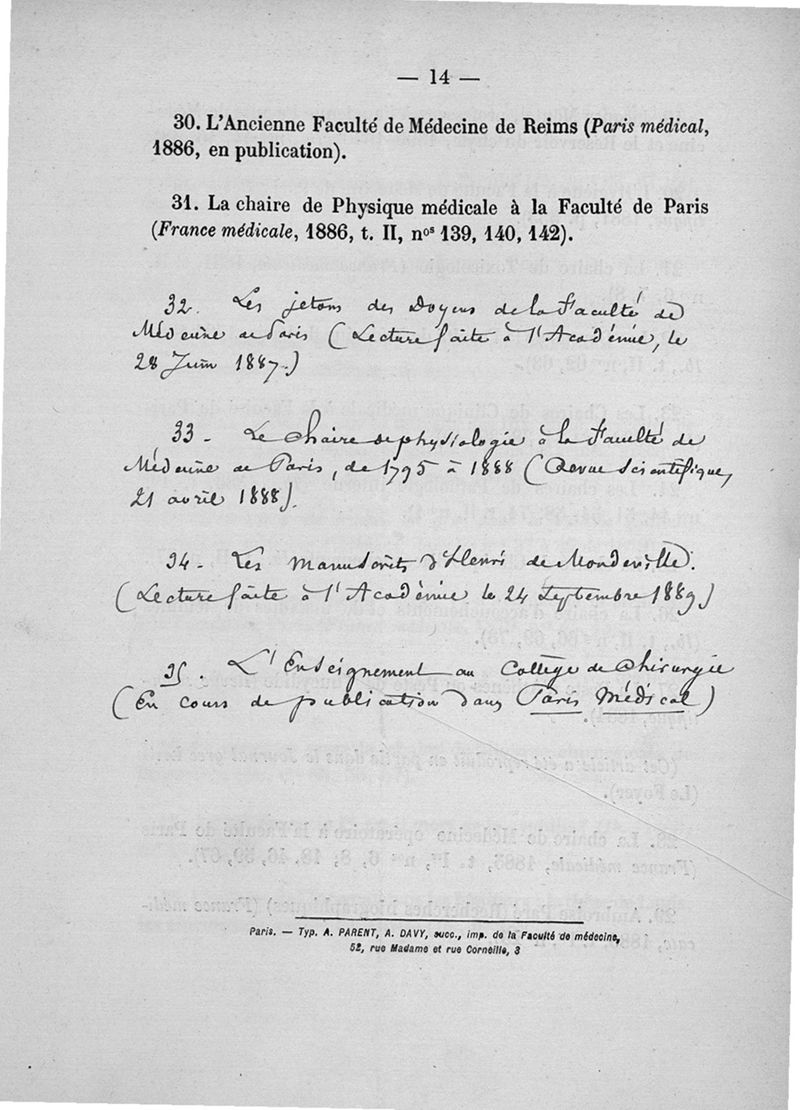 — 14 —
30. L'Ancienne Faculté de Médecine de Reims (Paris médical,
1886, en publication).
31. La chaire de Physique médicale à la Faculté de Paris
(France médicale, 1886, t. II, nos 139, 140, 142).
32. Les jetons des Doyens de la Faculté de
Médecine de Paris (Lecture faite à l'Académie, le
28 Juin 1887.)
33 - La Chaire de physiologie à la Faculté de
Médecine de Paris, de 1795 à 1888 (Revue Scientifique,
21 avril 1888).
34 - Les Manuscrits d'Henri de Mondeville.
(Lecture faite à l'Académie le 24 Septembre 1889)
35. L'Enseignement au Collège de Chirurgie
(En cours de publication dans Paris Médical)
Paris. — Typ. A. PARENT, A. DAVY, succ., imp. de la Faculté de médecine,
52, rue Madame et rue Corneille, 3